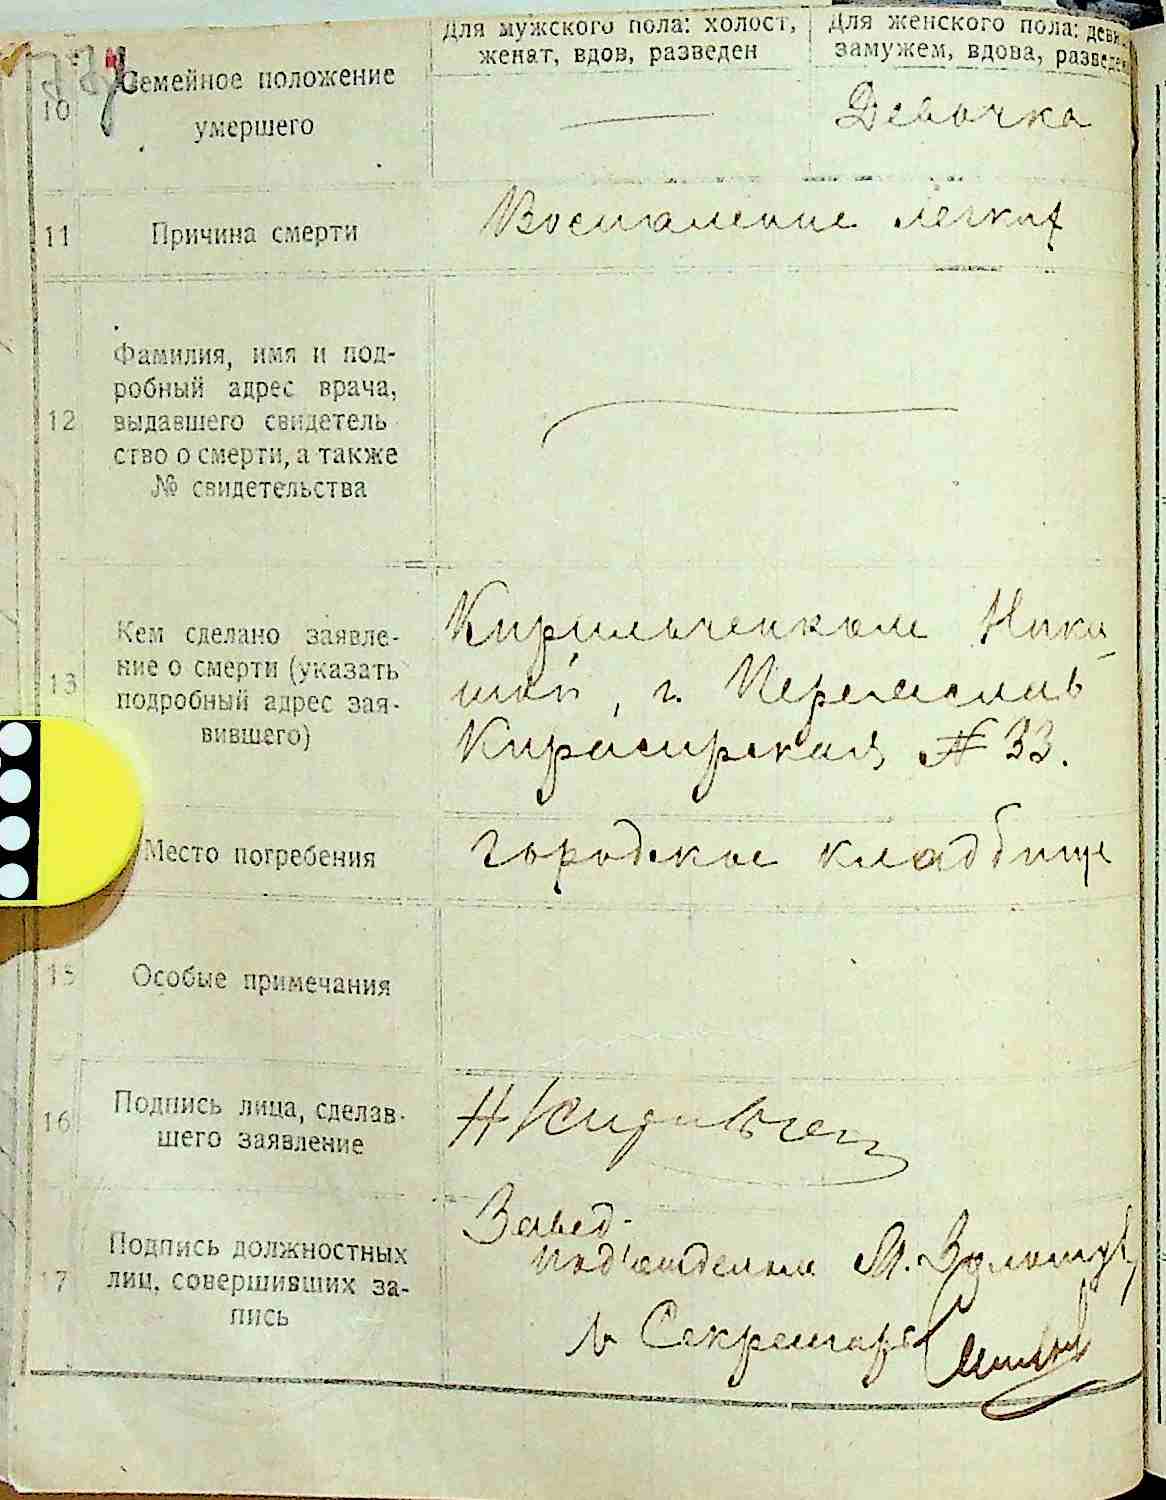 Для мужского пола: холост,
женат, вдов, разведен
Для женского пола: деви
замужем, вдова, разведен
10
Семейное положение
умершего
Девочка
11
Причина смерти
Воспаление легких
12
Фамилия, имя и под-
робный адрес врача,
выдавшего свидетель
ство о смерти, а также
№ свидетельства
13
Кем сделано заявле-
ние о смерти (указать
подробный адрес зая-
вившего)
Кирильченком Ники
той, г. Переяслав
Кирасирская № 33.
Место погребения
городское кладбище
15
Особые примечания
16
Подпись лица, сделав-
шего заявление
Н Кирильчен
17
Подпись должностных
лиц, совершивших за-
пись
Завед.
под'отделом М.
Секретарь